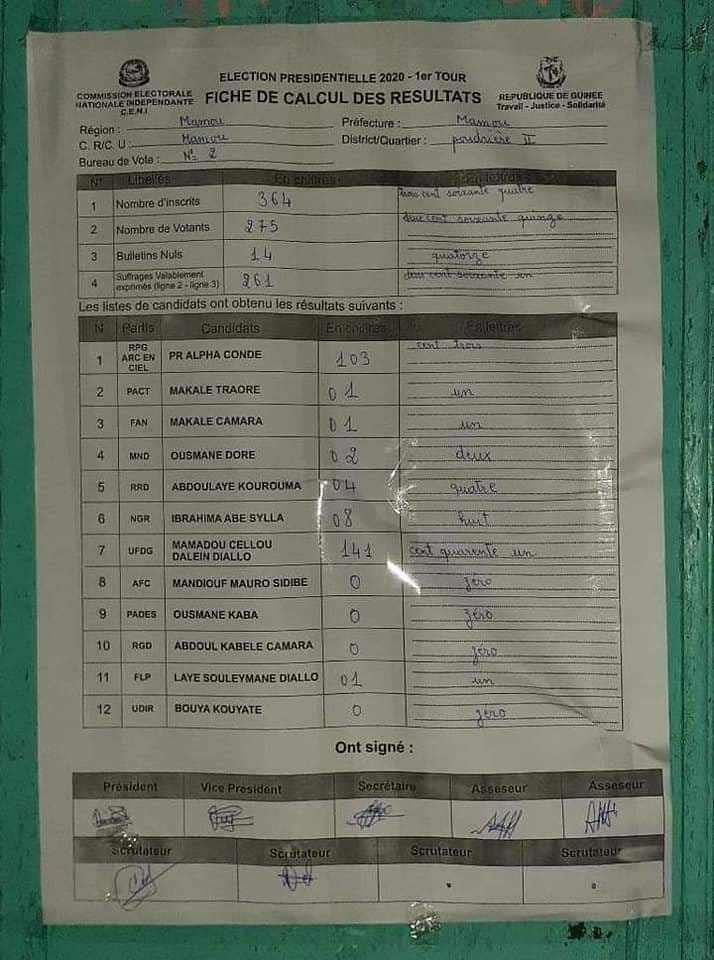 COMMISSION ELECTORALE
NATIONALE INDEPENDANTE
C.E.N.I
ELECTION PRESIDENTIELLE 2020 - 1er TOUR
FICHE DE CALCUL DES RESULTATS
REPUBLIQUE DE GUINEE
Travail - Justice - Solidarité
Région : Mamou Préfecture : Mamou
C. R/C. U : Mamou District/Quartier : poudrière II
Bureau de Vote : N° 2
N° Libellés En chiffres En lettres
1 Nombre d'inscrits 364 trois cent soixante quatre
2 Nombre de Votants 275 deux cent soixante quinze
3 Bulletins Nuls 14 quatorze
4 Suffrages Valablement exprimés (ligne 2 - ligne 3) 261 deux cent soixante un
Les listes de candidats ont obtenu les résultats suivants :
N° Partis Candidats En chiffres En lettres
1 RPG ARC EN CIEL PR ALPHA CONDE 103 cent trois
2 PACT MAKALE TRAORE 01 un
3 FAN MAKALE CAMARA 01 un
4 MND OUSMANE DORE 02 deux
5 RRD ABDOULAYE KOUROUMA 04 quatre
6 NGR IBRAHIMA ABE SYLLA 08 huit
7 UFDG MAMADOU CELLOU DALEIN DIALLO 141 cent quarente un
8 AFC MANDIOUF MAURO SIDIBE 0 zéro
9 PADES OUSMANE KABA 0 zéro
10 RGD ABDOUL KABELE CAMARA 0 zéro
11 FLP LAYE SOULEYMANE DIALLO 01 un
12 UDIR BOUYA KOUYATE 0 zéro
Ont signé :
Président Vice Président Secrétaire Asseseur Asseseur
Scrutateur Scrutateur Scrutateur Scrutateur